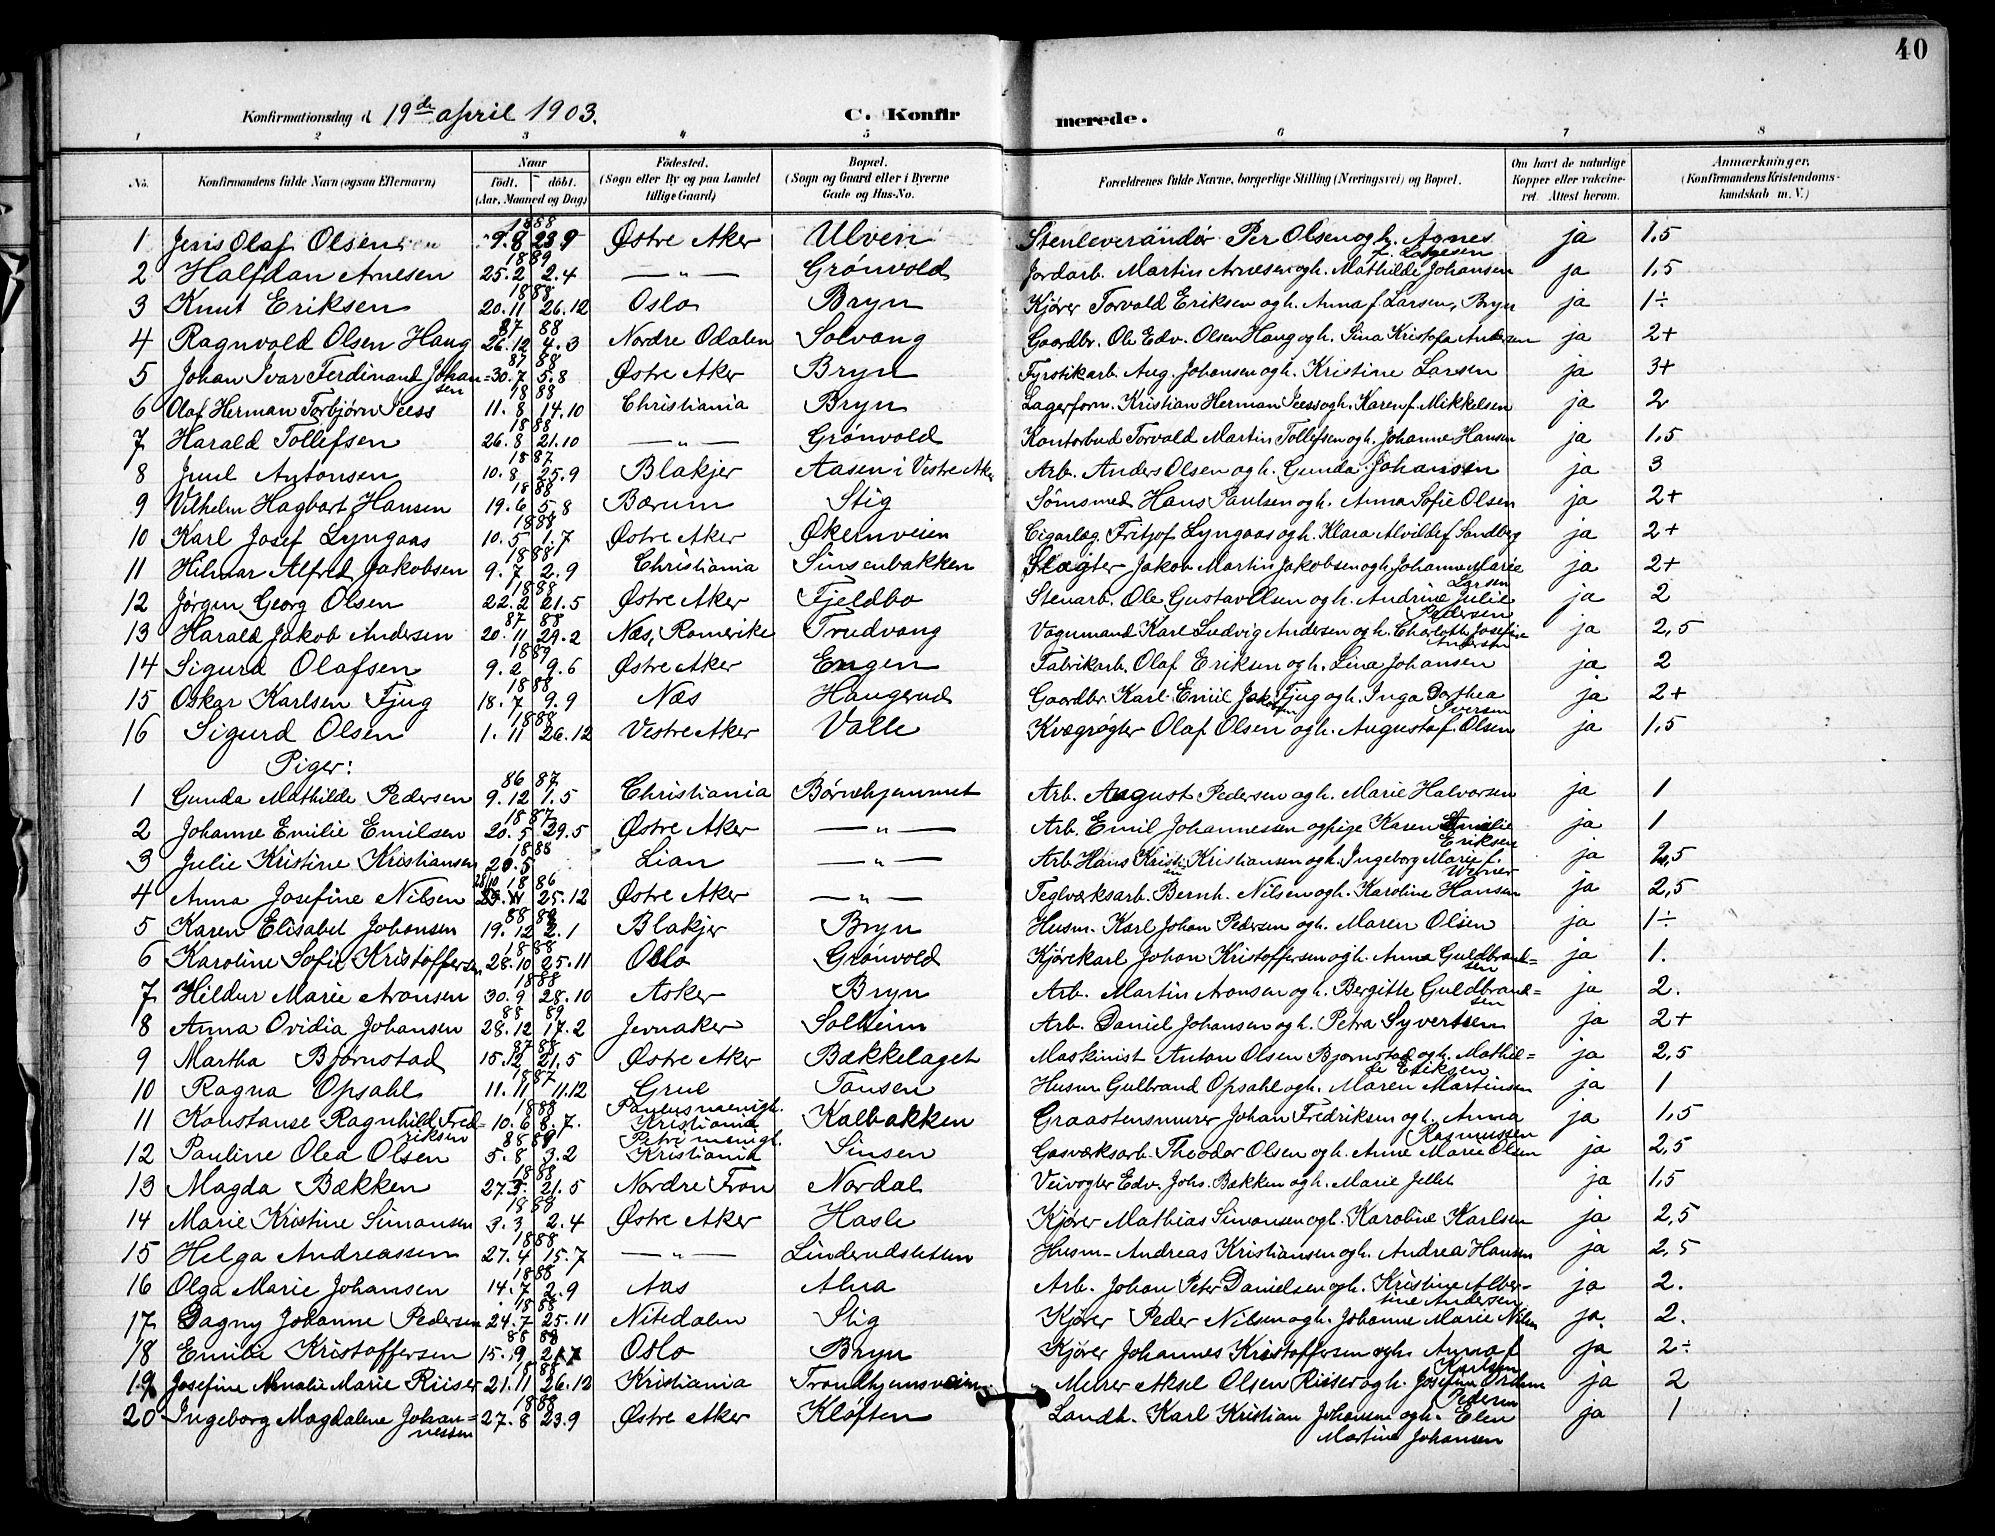 40
Konfirmationsdag d 19de april 1903. C. Konfir merede.
1 2 3 4 5 6 7 8
No. Konfirmandens fulde Navn (ogsaa Efternavn) Naar født. døbt. (Aar, Maaned og Dag) Fødested. (Sogn eller By og paa Landet tillige Gaard) Bopæl. (Sogn og Gaard eller i Byerne Gade og Hus-No. Forældrenes fulde Navne, borgerlige Stilling (Næringsvei) og Bopæl. Om havt de naturlige Kopper eller vakcineret. Attest herom. Anmærkninger. (Konfirmandens Kristendomskundskab m. V.)
1 Jens Olaf Olsen 1888 9.8 23.9 Østre Aker Ulven Stenleverandør Per Olsen og h. Agnes f. Larsen ja 1,5
2 Halfdan Arnesen 1889 25.2 2.4 —„— Grønvold Jordarb. Martin Arnesen og h. Mathilde Johansen ja 1,5
3 Knut Eriksen 1888 20.11 26.12 Oslo Bryn Kjører Torvald Eriksen og h. Anna f. Larsen, Bryn ja 1÷
4 Ragnvald Olsen Haug 87 88 26.12 4.3 Nordre Odalen Solvang Gaardbr. Ole Edv. Olsen Haug og h. Sina Kristofa Andersen ja 2+
5 Johan Ivar Ferdinand Johansen 87 88 30.7 5.8 Østre Aker Bryn Fyrstikarb. Aug. Johansen og h. Kristine Larsen ja 3+
6 Olaf Herman Torbjørn Jess 1888 11.8 14.10 Christiania Bryn Lagerform. Kristian Herman Jess og h. Karen f. Mikkelsen ja 2
7 Harald Tollefsen 1888 26.8 21.10 —„— Grønvold Kontorbud Torvald Martin Tollefsen og h. Johanne Hansen ja 1,5
8 Juul Antonsen 1887 10.8 25.9 Blakjer Aasen i Vestre Aker Arb. Anders Olsen og h. Gunda Johansen ja 3
9 Vilhelm Hagbart Hansen 1888 19.6 5.8 Bærum Stig Sømsmed Hans Paulsen og h. Anna Sofie Olsen ja 2+
10 Karl Josef Lyngaas 1888 10.5 1.7 Østre Aker Økernveien Cigarlæg. Fritjof Lyngaas og h. Klara Alvilde f. Sandberg ja 2+
11 Hilmar Alfred Jakobsen 1888 9.7 2.9 Christiania Sinsenbakken Slagter Jakob Martin Jakobsen og h. Johanne Marie Larsen ja 2+
12 Jørgen Georg Olsen 1888 22.2 21.5 Østre Aker Fjeldbo Stenarb. Ole Gustav Olsen og h. Andrine Julie Pedersen ja 2
13 Harald Jakob Andersen 87 88 20.11 29.2 Næs, Romerike Trudvang Vognmand Karl Ludvig Andersen og h. Charlotte Josefine Andersen ja 2,5
14 Sigurd Olafsen 1889 9.2 9.6 Østre Aker Engen Fabrikarb. Olaf Eriksen og h. Lina Johansen ja 2
15 Oskar Karlsen Fjug 1888 18.7 9.9 Næs Haugerud Gaardbr. Karl Emil Jakobsen Fjug og h. Inga Dorthea Iversen ja 2+
16 Sigurd Olsen 1888 1.11 26.12 Vestre Aker Valle Kvægrøgter Olaf Olsen og h. Augusta f. Olsen ja 1,5
Piger:
1 Gunda Mathilde Pedersen 86 87 9.12 1.5 Christiania Børnehjemmet Arb. August Pedersen og h. Marie Halvorsen ja 1
2 Johanne Emilie Emilsen 1887 20.5 29.5 Østre Aker —„— Arb. Emil Johannessen og pige Karen Emilie Eriksen ja 1
3 Julie Kristine Kristiansen 1888 20.5 Lian —„— Arb. Hans Kristian Kristiansen og h. Ingeborg Marie f. Werner ja 2,5
4 Anna Josefine Nilsen 28/10 1886 25.12 Østre Aker —„— Teglværksarb. Bernh. Nilsen og h. Karoline Hansen ja 2,5
5 Karen Elisabet Johansen 88 89 19.12 2.1 Blakjer Bryn Husm. Karl Johan Pedersen og h. Maren Olsen ja 1÷
6 Karoline Sofie Kristoffersen 1888 28.10 25.11 Oslo Grønvold Kjørekarl Johan Kristoffersen og h. Anna Guldbrandsen ja 1.
7 Hildur Marie Aronsen 1888 30.9 28.10 Asker Bryn Arb. Martin Aronsen og h. Bergitte Guldbrandsen ja 2.
8 Anna Ovidia Johansen 88 89 28.12 17.2 Jevnaker Solheim Arb. Daniel Johansen og h. Petra Syvertsen ja 2+
9 Martha Bjørnstad 87 88 15.12 21.5 Østre Aker Bækkelaget Maskinist Anton Olsen Bjørnstad og h. Mathilde Eriksen ja 2,5
10 Ragna Opsahl 1887 11.11 11.12 Grue Tonsen Husm. Gulbrand Opsahl og h. Maren Martinsen ja 1
11 Konstanse Ragnhild Fredriksen 1888 10.6 8.7. Paulus menigh. Kristiania Kalbakken Graastensmurer Johan Fredriksen og h. Anna Rasmussen ja 1,5
12 Pauline Olea Olsen 88 89 5.8 3.2 Petri menigh. Kristiania Sinsen Gasværksarb. Theodor Olsen og h. Anne Marie Olsen ja 2,5
13 Magda Bækken 1888 27.3. 21.5 Nordre Fron Nordal Veivogter Edv. Johs. Bækken og h. Marie Jellet ja 1,5
14 Marie Kristine Simonsen 1888 3.3 2.4 Østre Aker Hasle Kjører Mathias Simonsen og h. Karoline Karlsen ja 2,5
15 Helga Andreassen 1888 27.4 15.7 —„— Linderudsletten Husm. Andreas Kristiansen og h. Andrea Hansen ja 2,5
16 Olga Marie Johansen 1888 14.7 2.9 Aas Alna Arb. Johan Peter Danielsen og h. Kristine Albertine Andersen ja 2.
17 Dagny Johanne Pedersen 1888 24.7 25.11 Nitedalen Stig Kjører Peder Nilsen og h. Johanne Marie Nilsen ja 2.
18 Emilie Kristoffersen 88 88 15.9 Oslo Bryn Kjører Johannes Kristoffersen og h. Anna f. Karlsen ja 2÷
19 Josefine Amalie Marie Riiser 1888 21.11 26.12 Kristiania Trondhjemsveien Murer Aksel Olsen Riiser og h. Josefine Pedersen ja 2
20 Ingeborg Magdalene Johannessen 1888 27.8 23.9 Østre Aker Kløften Landh. Karl Kristian Johansen og h. Elen Martine Johansen ja 1